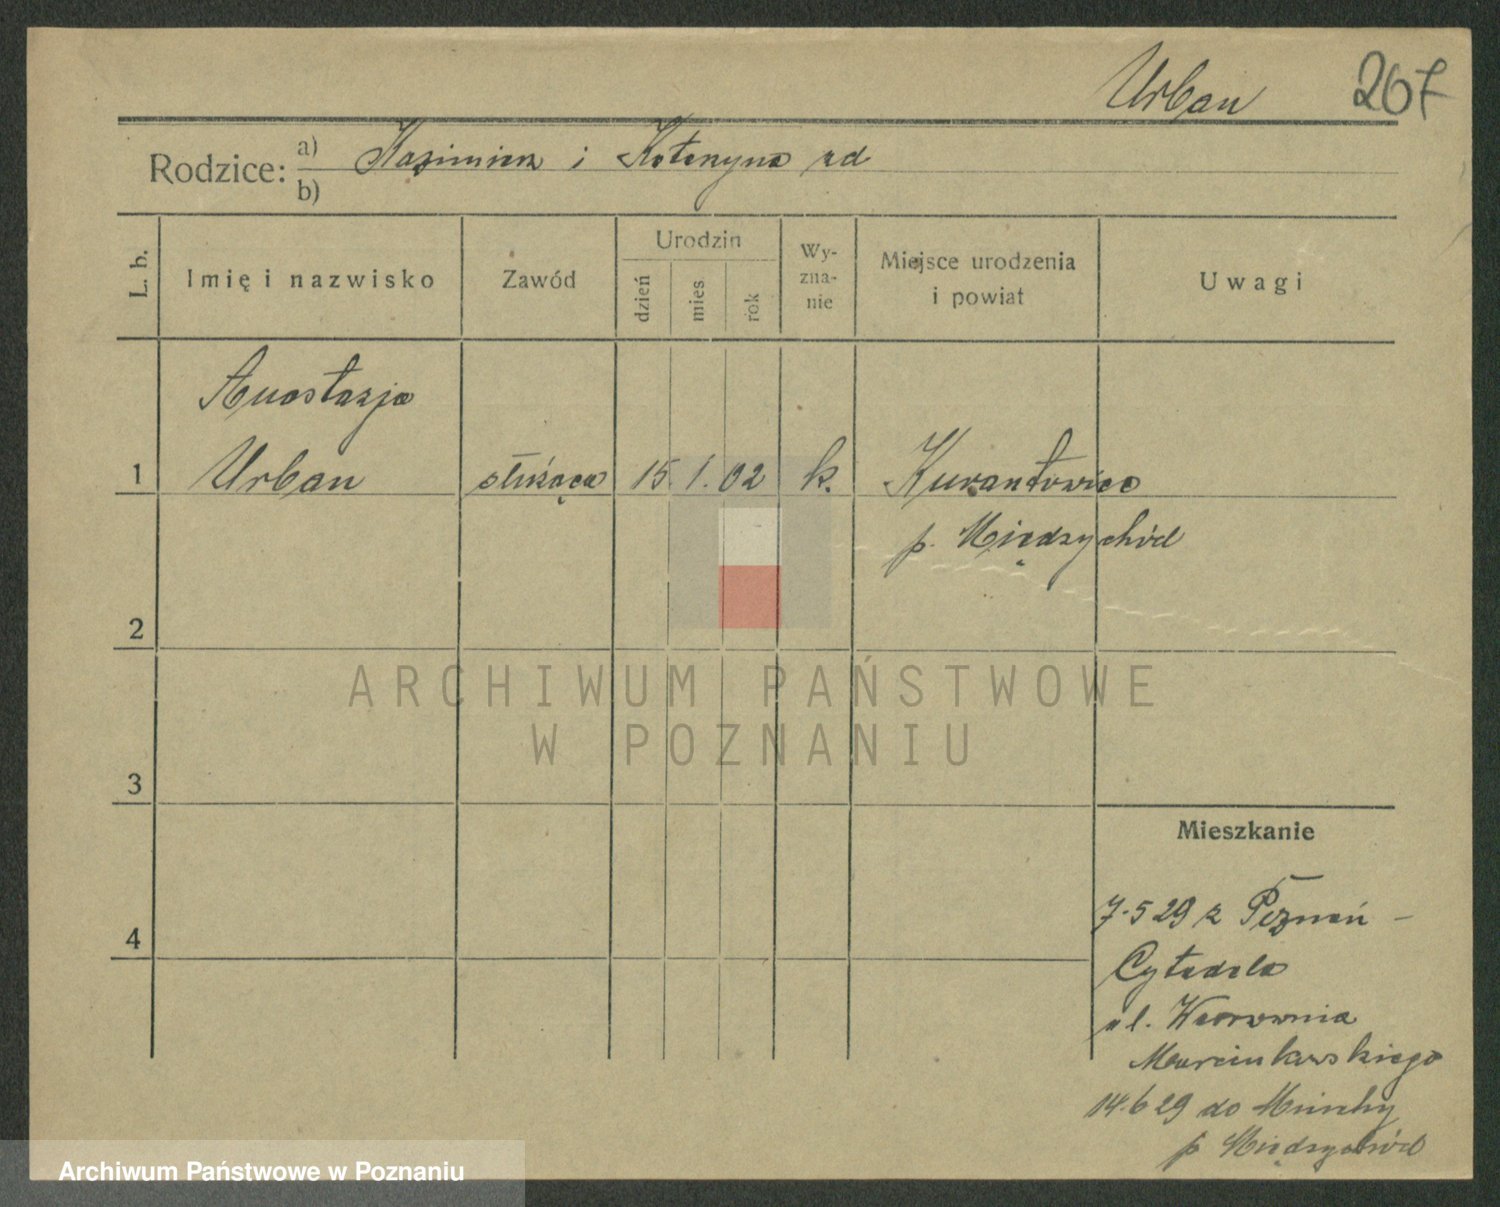 Urban 267
Rodzice: a) Kazimierz i Katarzyna zd
b)
L. b.
Imię i nazwisko
Zawód
Urodzin
dzień
mies
rok
Wy-
zna-
nie
Miejsce urodzenia
i powiat
Uwagi
Anastazja
1 Urban służąca 15. 1. 02 k. Kurantowice
p. Międzychód
2
ARCHIWUM PAŃSTWOWE
W POZNANIU
3
Mieszkanie
7.5 29 z Poznań -
4
Cytadela
ul. Warownia
Marcinkowskiego
14.6 29 do Mniechy
p Międzychód
Archiwum Państwowe w Poznaniu